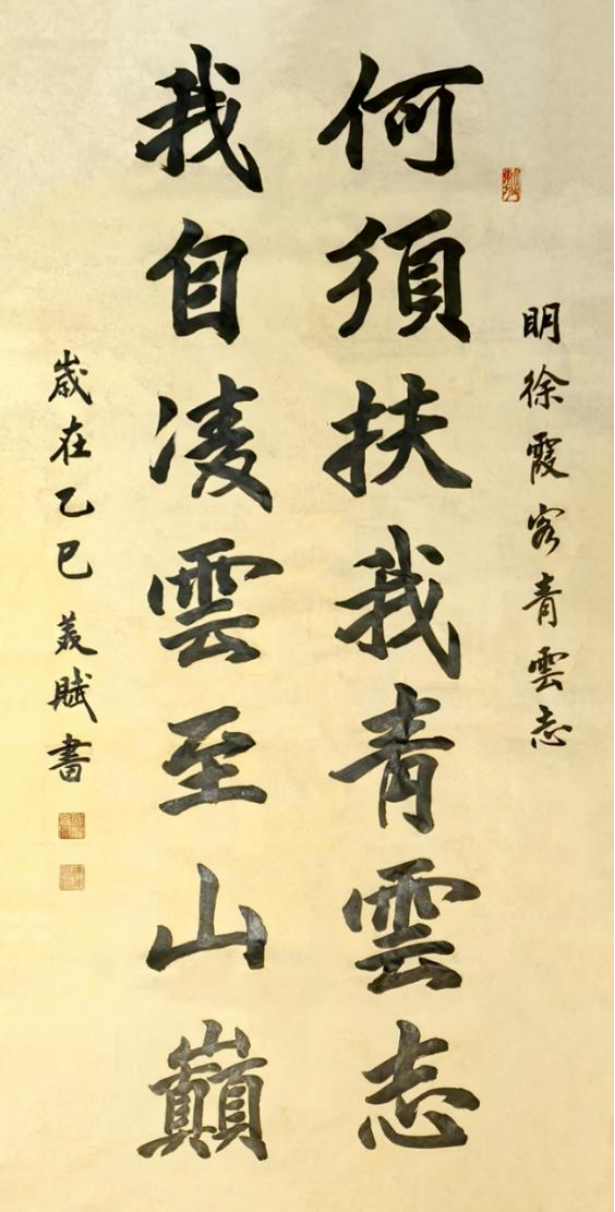 明徐霞客青雲志
何須扶我青雲志
我自凌雲至山巔
歲在乙巳 美賦書